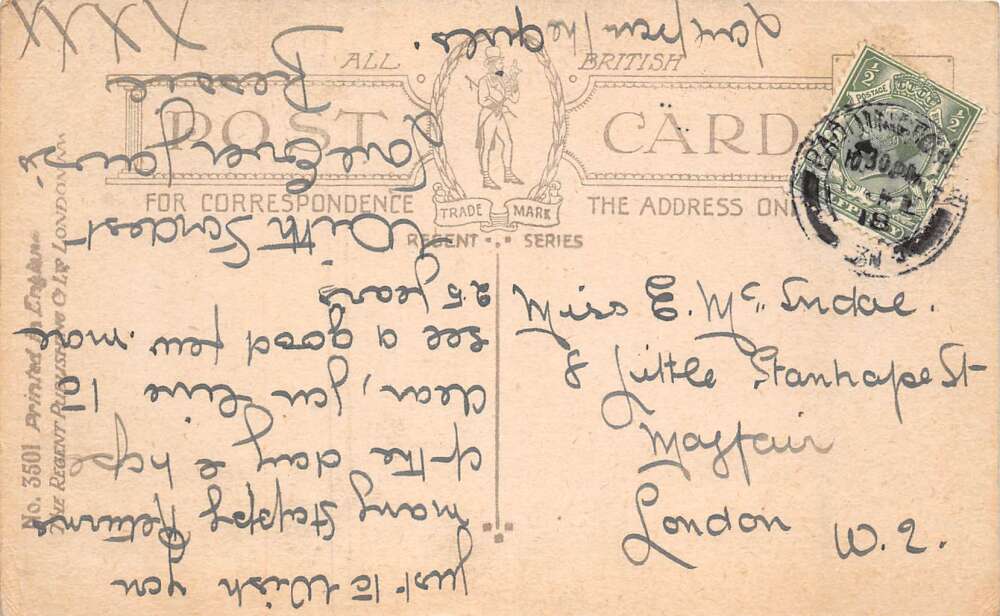 ALL BRITISH
POST CARD
FOR CORRESPONDENCE
THE ADDRESS ONLY
TRADE MARK
REGENT SERIES
½ POSTAGE ½
PADDINGTON
10.30 PM
18
Miss E. Mc
8 Little Stanhope St
Mayfair
London W. 2.
Just to Wish you
many Happy Returns
of the day & hope
dear, you live to
see a good few more
25 years
With Fondest
Love from
Bessie
XXXX
No. 3501 Printed in England
THE REGENT PUBLISHING Co LTD LONDON NW